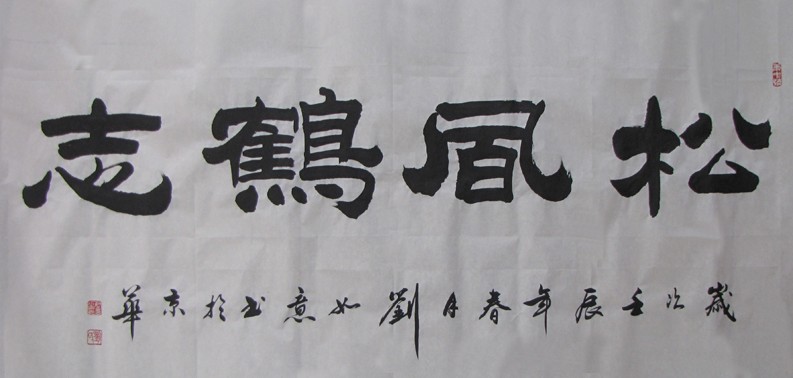 松風鶴志
歲次壬辰年春月劉如意书於京華